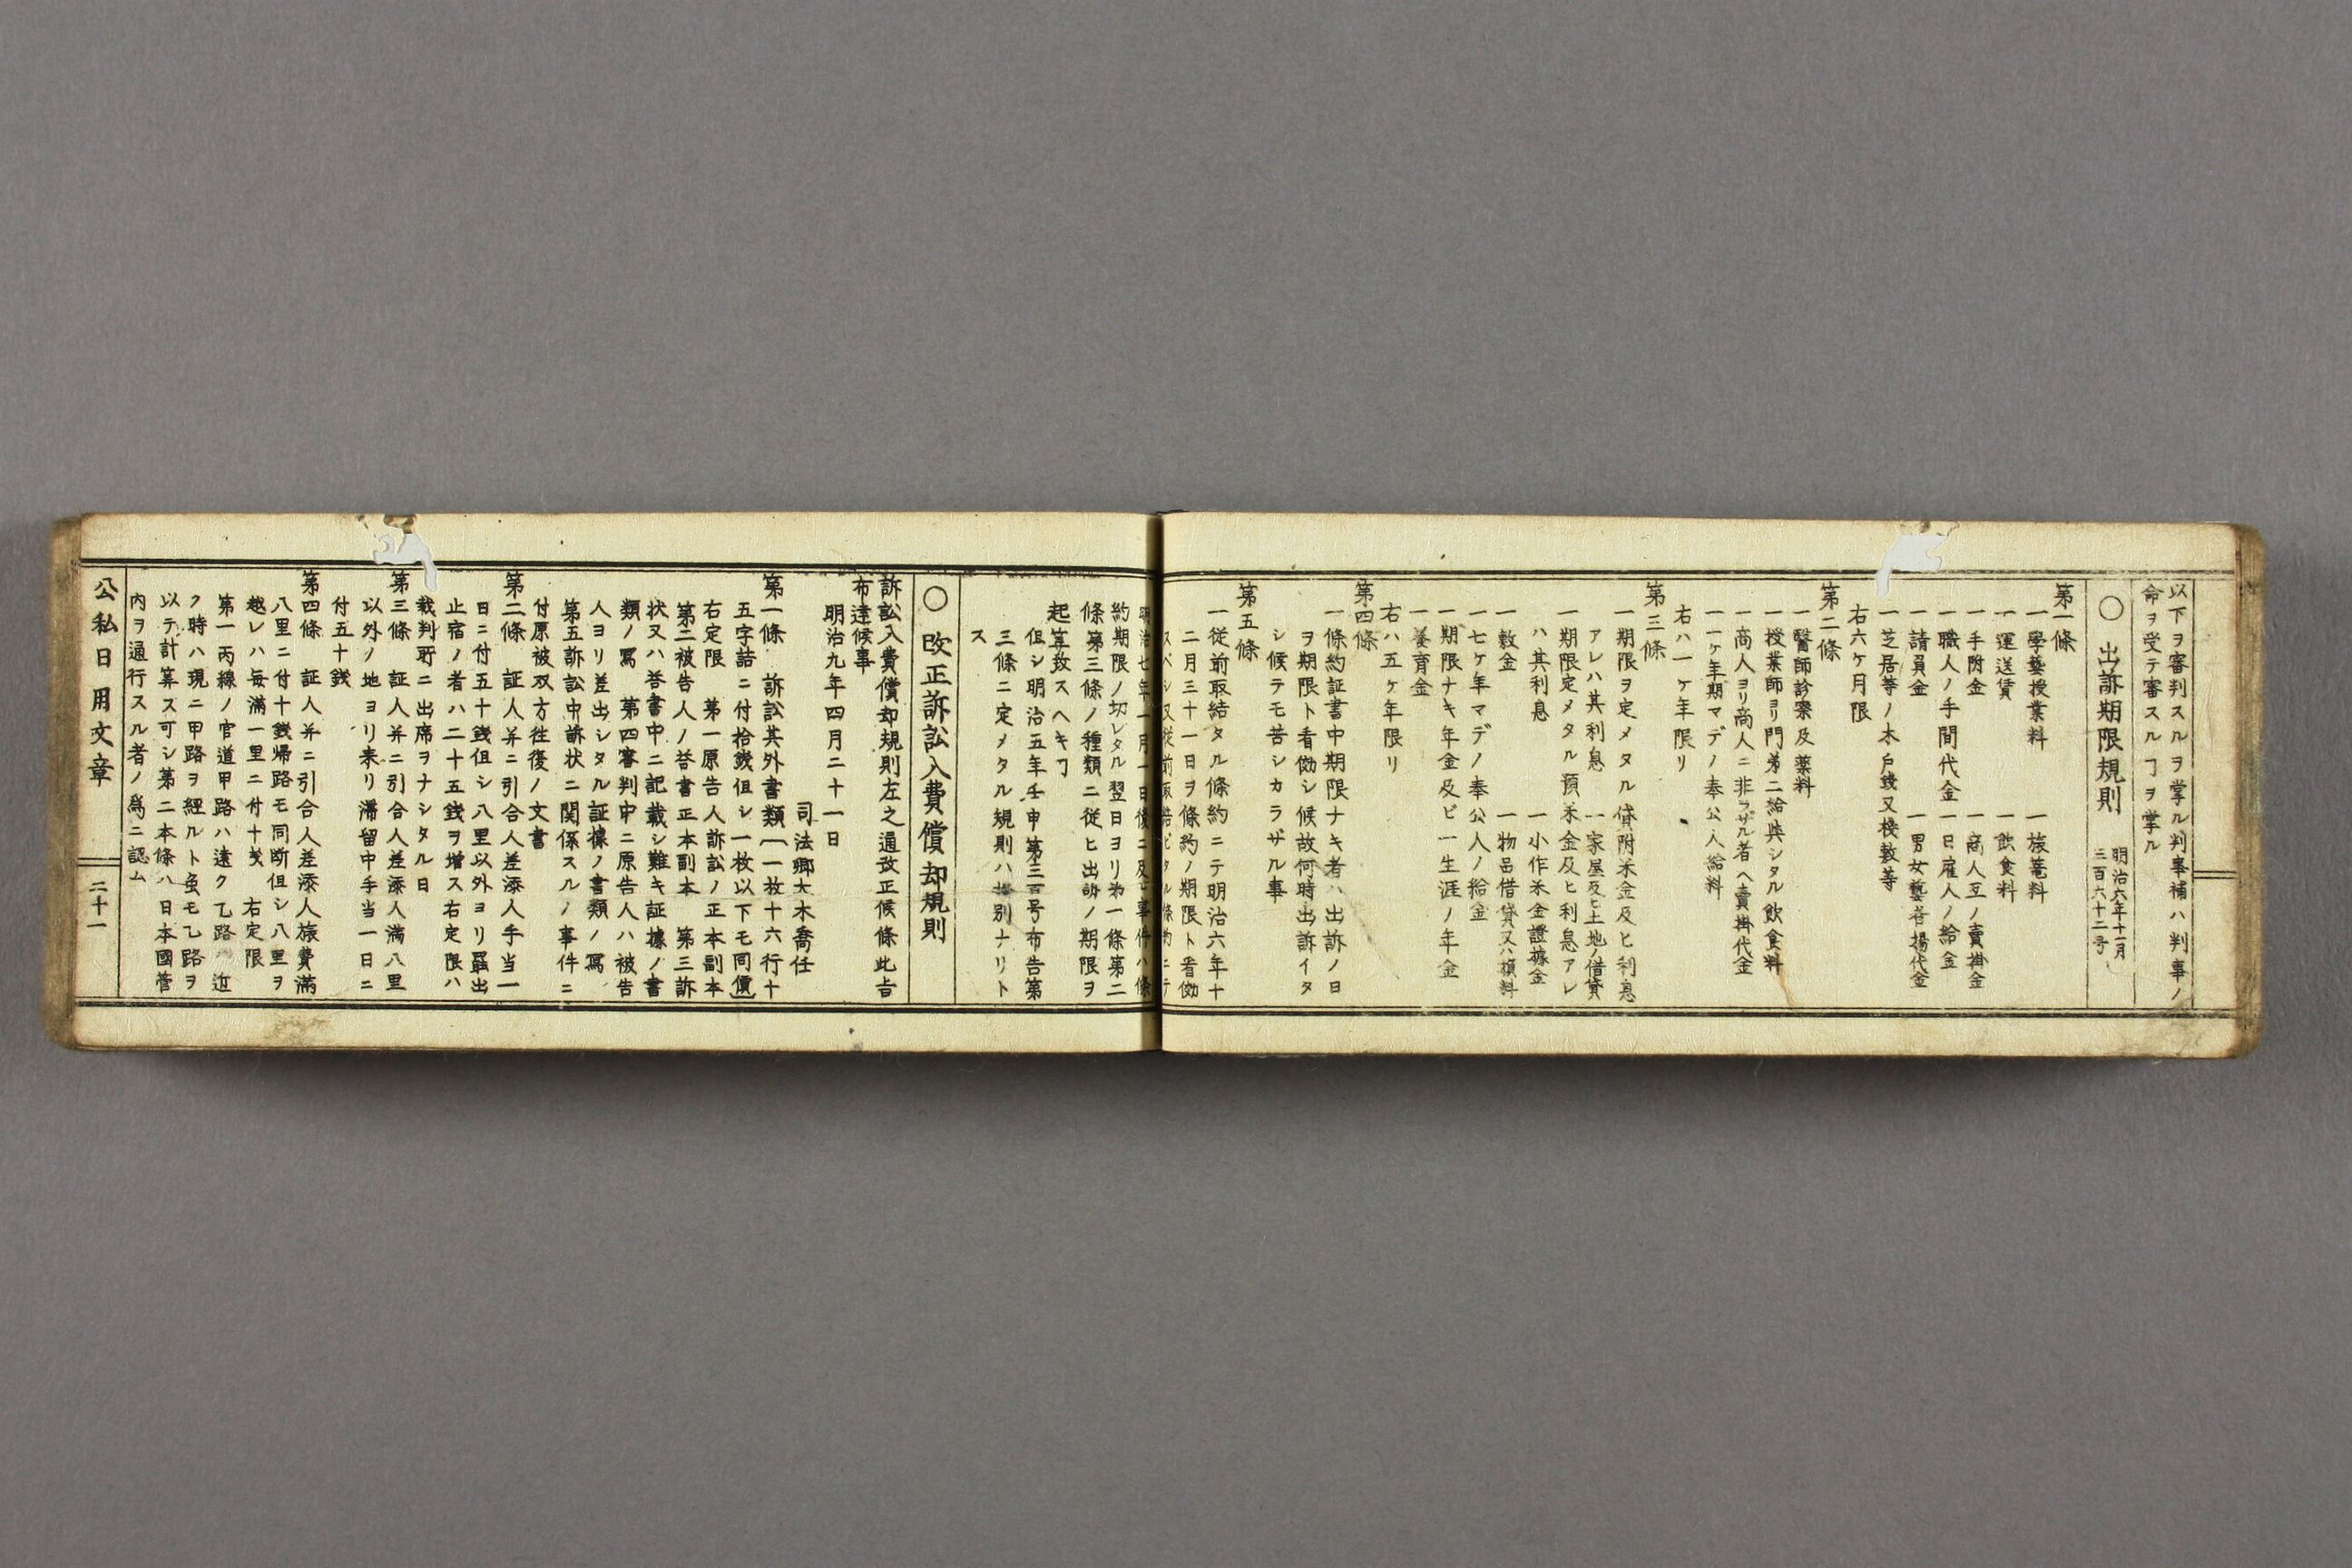 以下ヲ審判スルヲ掌ル判事補ハ判事ノ
命ヲ受テ審スルヿヲ掌ル
○ 出訴期限規則 明治六年十一月
三百六十二号
第一條
一學藝授業料 一旅篭料
一運送賃 一飲食料
一手附金 一商人互ノ賣掛金
一職人ノ手間代金 一日雇人ノ給金
一請負金 一男女藝者揚代金
一芝居等ノ木戸銭又桟敷等
右六ケ月限
第二條
一醫師診察及薬料
一授業師ヨリ門弟ニ給與シタル飲食料
一商人ヨリ商人ニ非ラザル者ヘ賣掛代金
一一ケ年期マデノ奉公人給料
右ハ一ケ年限リ
第三條
一期限ヲ定メタル貸附米金及ヒ利息
アレハ其利息 一家屋及ヒ土地ノ借賃
一期限定メタル預米金及ヒ利息アレ
ハ其利息 一小作米金證據金
一敷金 一物品借賃又ハ損料
一七ケ年マデノ奉公人ノ給金
一期限ナキ年金及ビ一生涯ノ年金
一養育金
右ハ五ケ年限リ
第四條
一條約証書中期限ナキ者ハ出訴ノ日
ヲ期限ト看做シ候故何時出訴イタ
シ候テモ苦シカラザル事
第五條
一従前取結タル條約ニテ明治六年十
二月三十一日ヲ條約ノ期限ト看做
スベシ又従前取結ビタル條約ニテ
明治七年一月一日後ニ及ビ事件ハ條
約期限ノ切レタル翌日ヨリ第一條第二
條第三條ノ種類ニ従ヒ出訴ノ期限ヲ
起算致スヘキヿ
但シ明治五年壬申第三百号布告第
三條ニ定メタル規則ハ格別ナリト
ス
○ 改正訴訟入費償却規則
訴訟入費償却規則左之通改正候條此旨
布達候事
明治九年四月二十一日
司法卿大木喬任
第一條 訴訟其外書類〔一枚十六行十
五字詰ニ付拾銭但シ一枚以下モ同價〕
右定限 第一原告人訴訟ノ正本副本
第二被告人ノ答書正本副本 第三訴
状又ハ答書中ニ記載シ難キ証據ノ書
類ノ寫 第四審判中ニ原告人ハ被告
人ヨリ差出シタル証據ノ書類ノ寫
第五訴訟中訴状ニ関係スルノ事件ニ
付原被双方往復ノ文書
第二條 証人并ニ引合人差添人手当一
日ニ付五十銭但シ八里以外ヨリ罷出
止宿ノ者ハ二十五銭ヲ増ス右定限ハ
裁判所ニ出席ヲナシタル日
第三條 証人并ニ引合人差添人満八里
以外ノ地ヨリ来リ滞留中手当一日ニ
付五十銭
第四條 証人并ニ引合人差添人旅費満
八里ニ付十銭帰路モ同断但シ八里ヲ
越レハ毎満一里ニ付十銭 右定限
第一丙線ノ官道甲路ハ遠ク乙路ハ近
ク時ハ現ニ甲路ヲ経ルト虽モ乙路ヲ
以テ計算ス可シ第二本條ハ日本國管
内ヲ通行スル者ノ為ニ認ム
公私日用文章 二十一